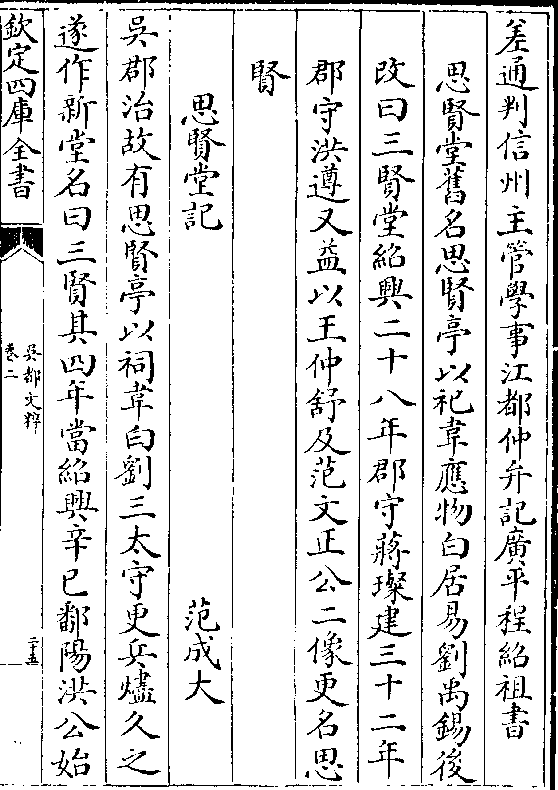 差通判信州主管學事江都仲并記廣平程紹祖書
思賢堂舊名思賢亭以祀韋應物白居易劉禹錫後
改曰三賢堂紹興二十八年郡守蔣璨建三十二年
郡守洪遵又益以王仲舒及范文正公二像更名思
賢
思賢堂記　范成大
吳郡治故有思賢亭以祠韋白劉三太守更兵燼久之
遂作新堂名曰三賢其四年當紹興辛巳鄱陽洪公始
欽定四庫全書
吳都文粹
卷二
二十五